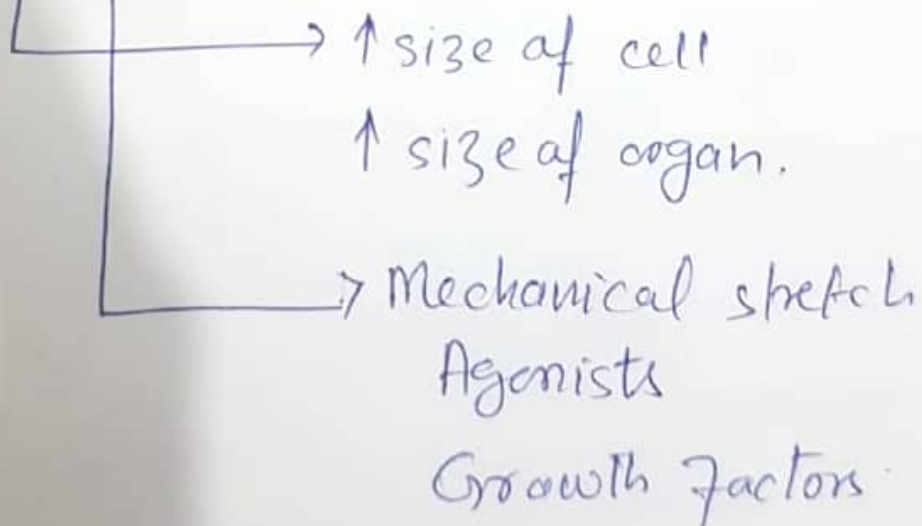 → ↑ size of cell
↑ size of organ.
→ Mechanical stretch
Agonists
Growth Factors